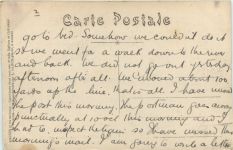 2
Carte Postale
go to bed. Somehow we couldn't do it
so we went for a walk down to the river
and back. we did not go out yesterday
afternoon after all. we moved about 100
yards up the line, that is all. I have missed
the post this morning. The postman goes away
punctually at 10 oclt this morning and I
had to inspect the so I have missed the
morning's mail. I am going to write a letter